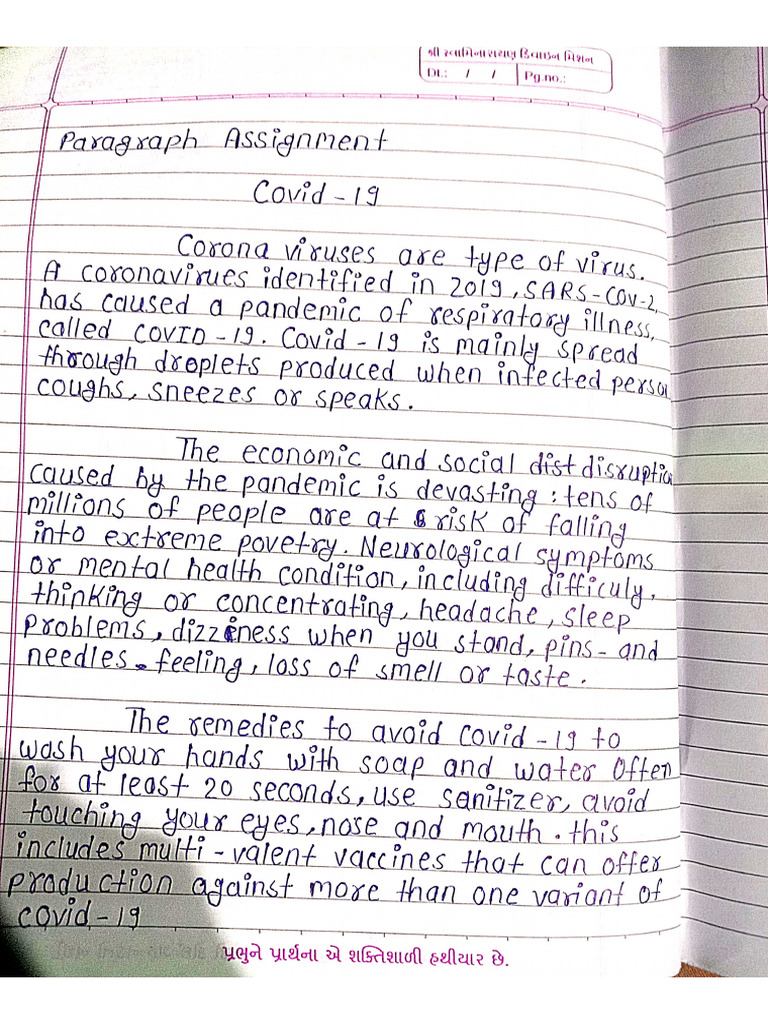 શ્રી સ્વામિનારાયણ ડિવાઇન મિશન
Dt.: / / Pg.no.:
Paragraph Assignment
Covid-19
Corona viruses are type of virus.
A coronavirues identified in 2019, SARS-COV-2,
has caused a pandemic of respiratory illness,
called COVID-19. Covid-19 is mainly spread
through droplets produced when infected person
coughs, sneezes or speaks.
The economic and social dist disruption
caused by the pandemic is devasting : tens of
millions of people are at risk of falling
into extreme povetry. Neurological symptoms
or mental health condition, including difficuly,
thinking or concentrating, headache, sleep
problems, dizziness when you stand, pins-and
needles-feeling, loss of smell or taste.
The remedies to avoid covid-19 to
wash your hands with soap and water often
for at least 20 seconds, use sanitizer, avoid
touching your eyes, nose and mouth. this
includes multi-valent vaccines that can offer
production against more than one variant of
covid-19
પ્રભુને પ્રાર્થના એ શક્તિશાળી હથીયાર છે.